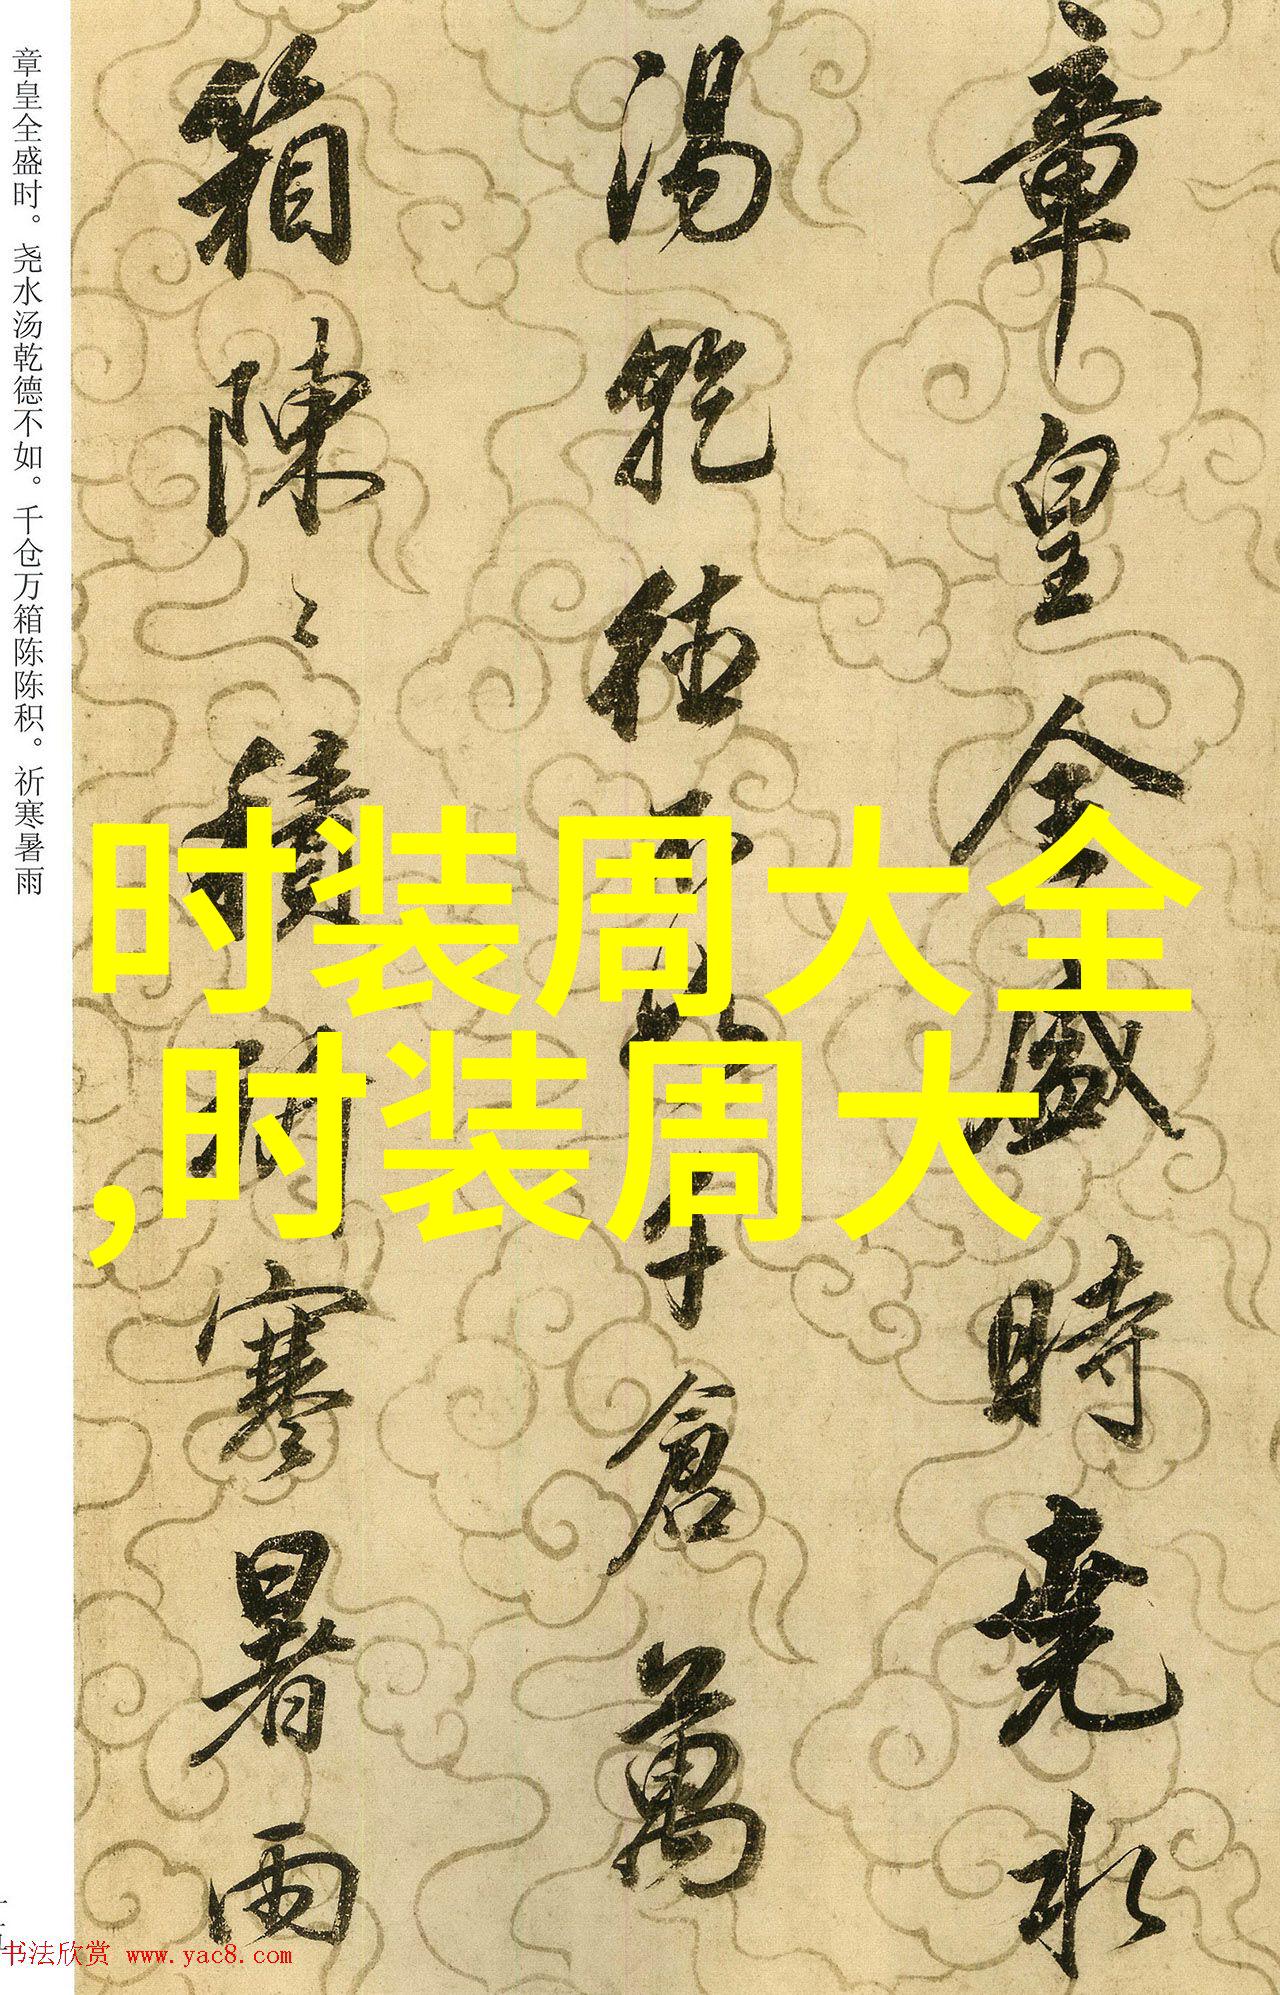 章皇全盛時堯水
湯乾德不如千倉萬
箱陳〻積祈寒暑雨
章皇全盛时。尧水汤乾德不如。千仓万箱陈陈积。祈寒暑雨
时装周大全
,时装周大
书法欣赏 www.yac8.com